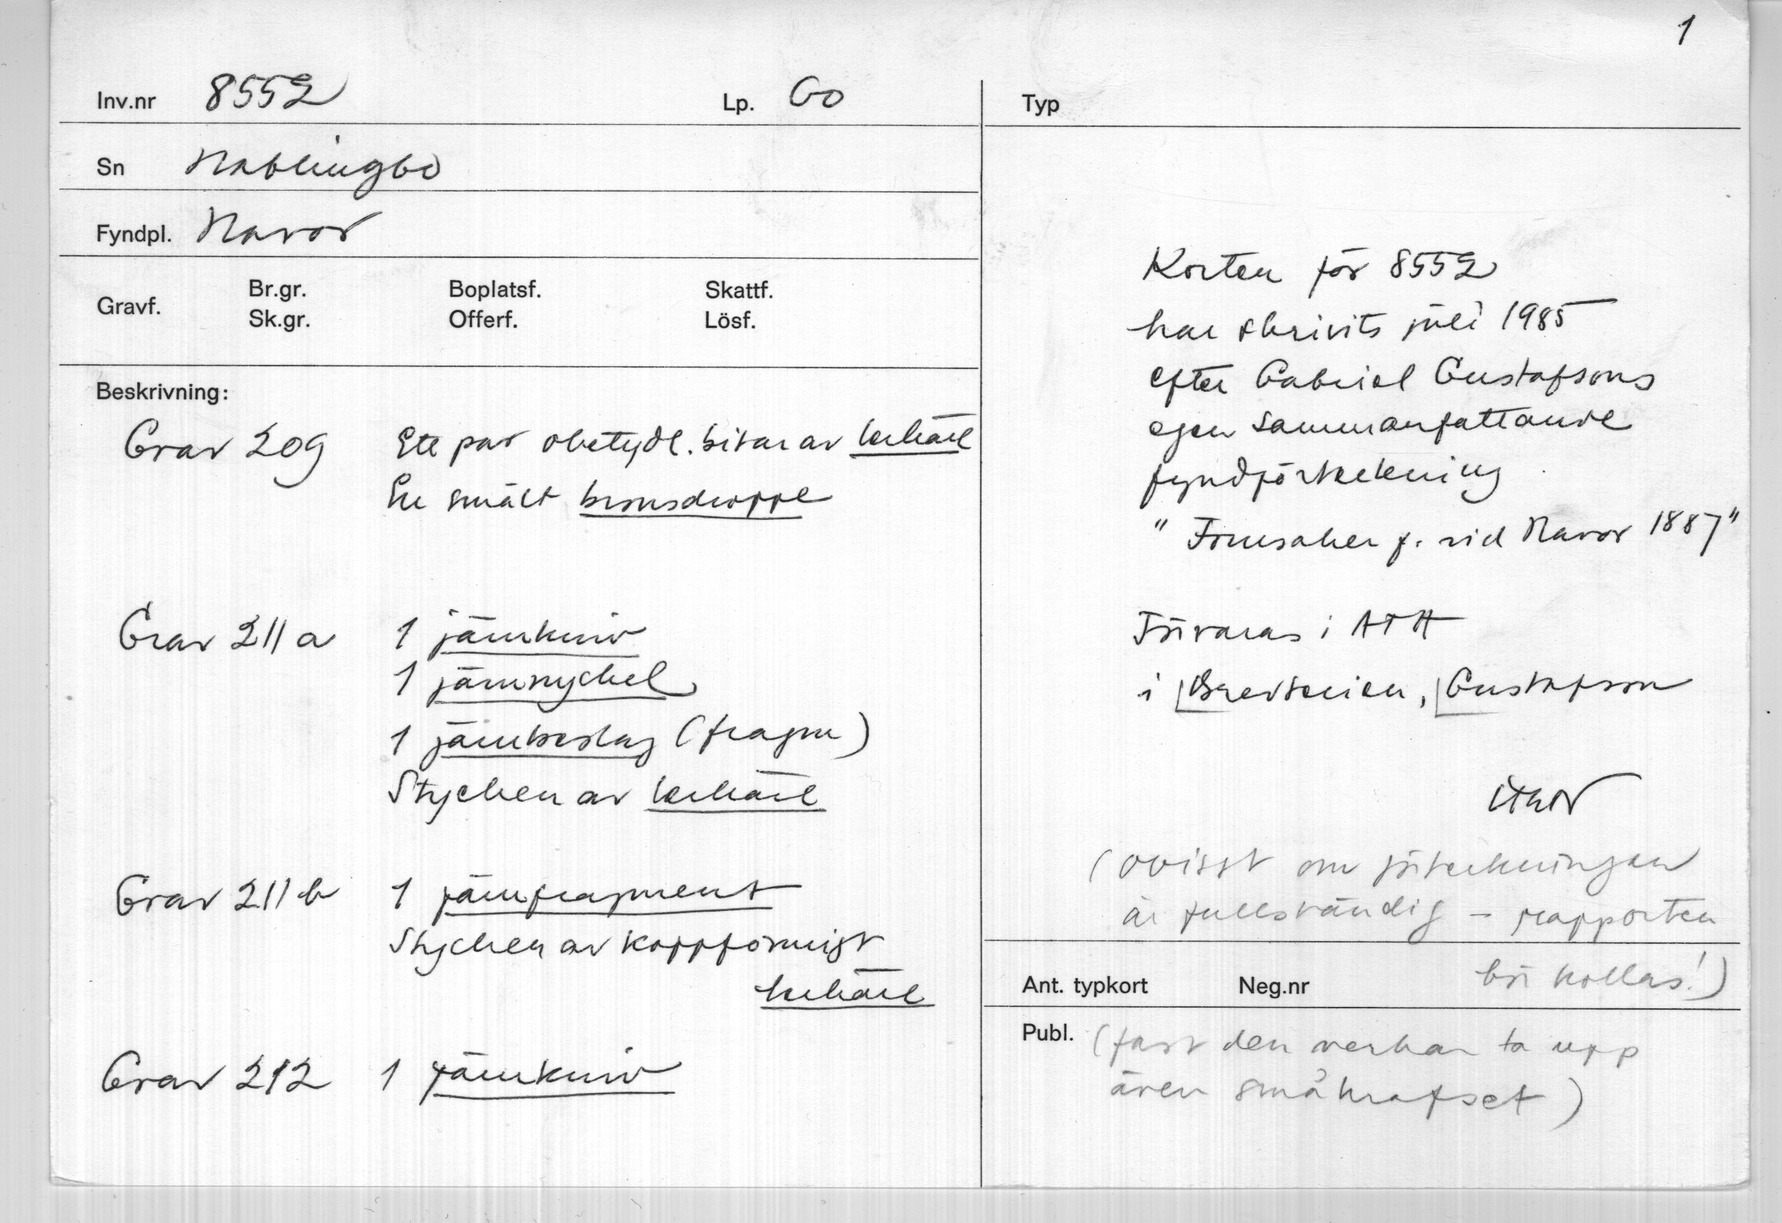 1
Inv.nr 8552 Lp. Go
Sn Hablingbo
Fyndpl. Havor
Gravf. Br.gr. Boplatsf. Skattf.
Sk.gr. Offerf. Lösf.
Beskrivning:
Grav 209 Ett par obetydl. bitar av lerkärl
En smält bronsdroppe
Grav 211 a 1 järnkniv
1 järnnyckel
1 järnbeslag (fragm)
Stycken av lerkärl
Grav 211 b 1 järnfragment
Stycken av koppformigt
lerkärl
Grav 212 1 järnkniv
Typ
Korten för 8552
har skrivits juli 1985
efter Gabriel Gustafsons
egen sammanfattande
fyndförteckning
" Fornsaker f. vid Havor 1887"
Förvaras i ATA
i Brevserien, Gustafson
(ovisst om förteckningen
är fullständig – rapporten
bör kollas!)
Ant. typkort Neg.nr
Publ. (fast den verkar ta upp
även småkrafset)